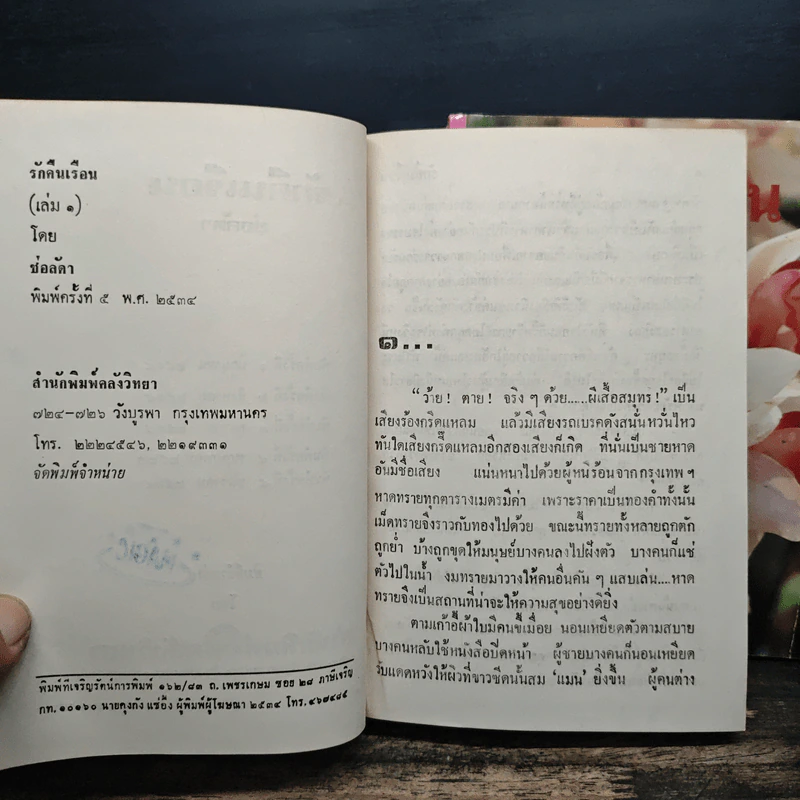 รักคืนเรือน
(เล่ม ๑)
โดย
ช่อลัดา
พิมพ์ครั้งที่ ๕ พ.ศ. ๒๕๓๔
สำนักพิมพ์คลังวิทยา
๗๒๔–๗๒๖ วังบูรพา กรุงเทพมหานคร
โทร. ๒๒๒๔๕๔๖, ๒๒๑๙๓๓๑
จัดพิมพ์จำหน่าย
พิมพ์ที่เจริญรัตน์การพิมพ์ ๑๖๒/๘๓ ถ. เพชรเกษม ซอย ๒๘ ภาษีเจริญ
กท. ๑๐๑๖๐ นายคุงกัง แซ่อึ้ง ผู้พิมพ์ผู้โฆษณา ๒๕๓๔ โทร. ๔๖๗๔๘๕
๑...
“ว้าย! ตาย! จริง ๆ ด้วย.....ผีเสื้อสมุทร!” เป็น
เสียงร้องกรี๊ดแหลม แล้วมีเสียงรถเบรคดังสนั่นหวั่นไหว
ทันใดเสียงกรี๊ดแหลมอีกสองเสียงก็เกิด ที่นั่นเป็นชายหาด
อันมีชื่อเสียง แน่นหนาไปด้วยผู้หนีร้อนจากกรุงเทพ ฯ
หาดทรายทุกตารางเมตรมีค่า เพราะราคาเป็นทองคำทั้งนั้น
เม็ดทรายจึงราวกับทองไปด้วย ขณะนี้ทรายทั้งหลายถูกตัก
ถูกย่ำ บ้างถูกขุดให้มนุษย์บางคนลงไปฝังตัว บางคนก็แช่
ตัวไปในน้ำ งมทรายมาวางให้คนอื่นคัน ๆ แสบเล่น....หาด
ทรายจึงเป็นสถานที่น่าจะให้ความสุขอย่างดียิ่ง
ตามเก้าอี้ผ้าใบมีคนขี้เมื่อย นอนเหยียดตัวตามสบาย
บางคนหลับใช้หนังสือปิดหน้า ผู้ชายบางคนก็นอนเหยียด
รับแดดหวังให้ผิวที่ขาวซีดนั้นสม ‘แมน’ ยิ่งขึ้น ผู้คนต่าง
น